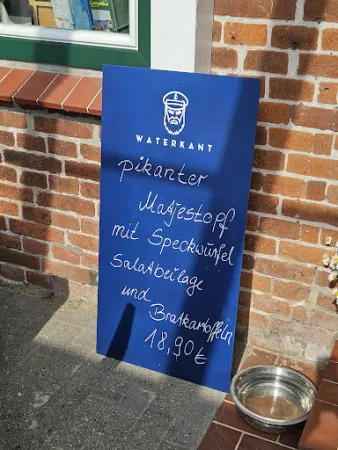 WATERKANT
pikanter
Matjestopf
mit Speckwürfel
Salatbeilage
und
Bratkartoffeln
18,90 €